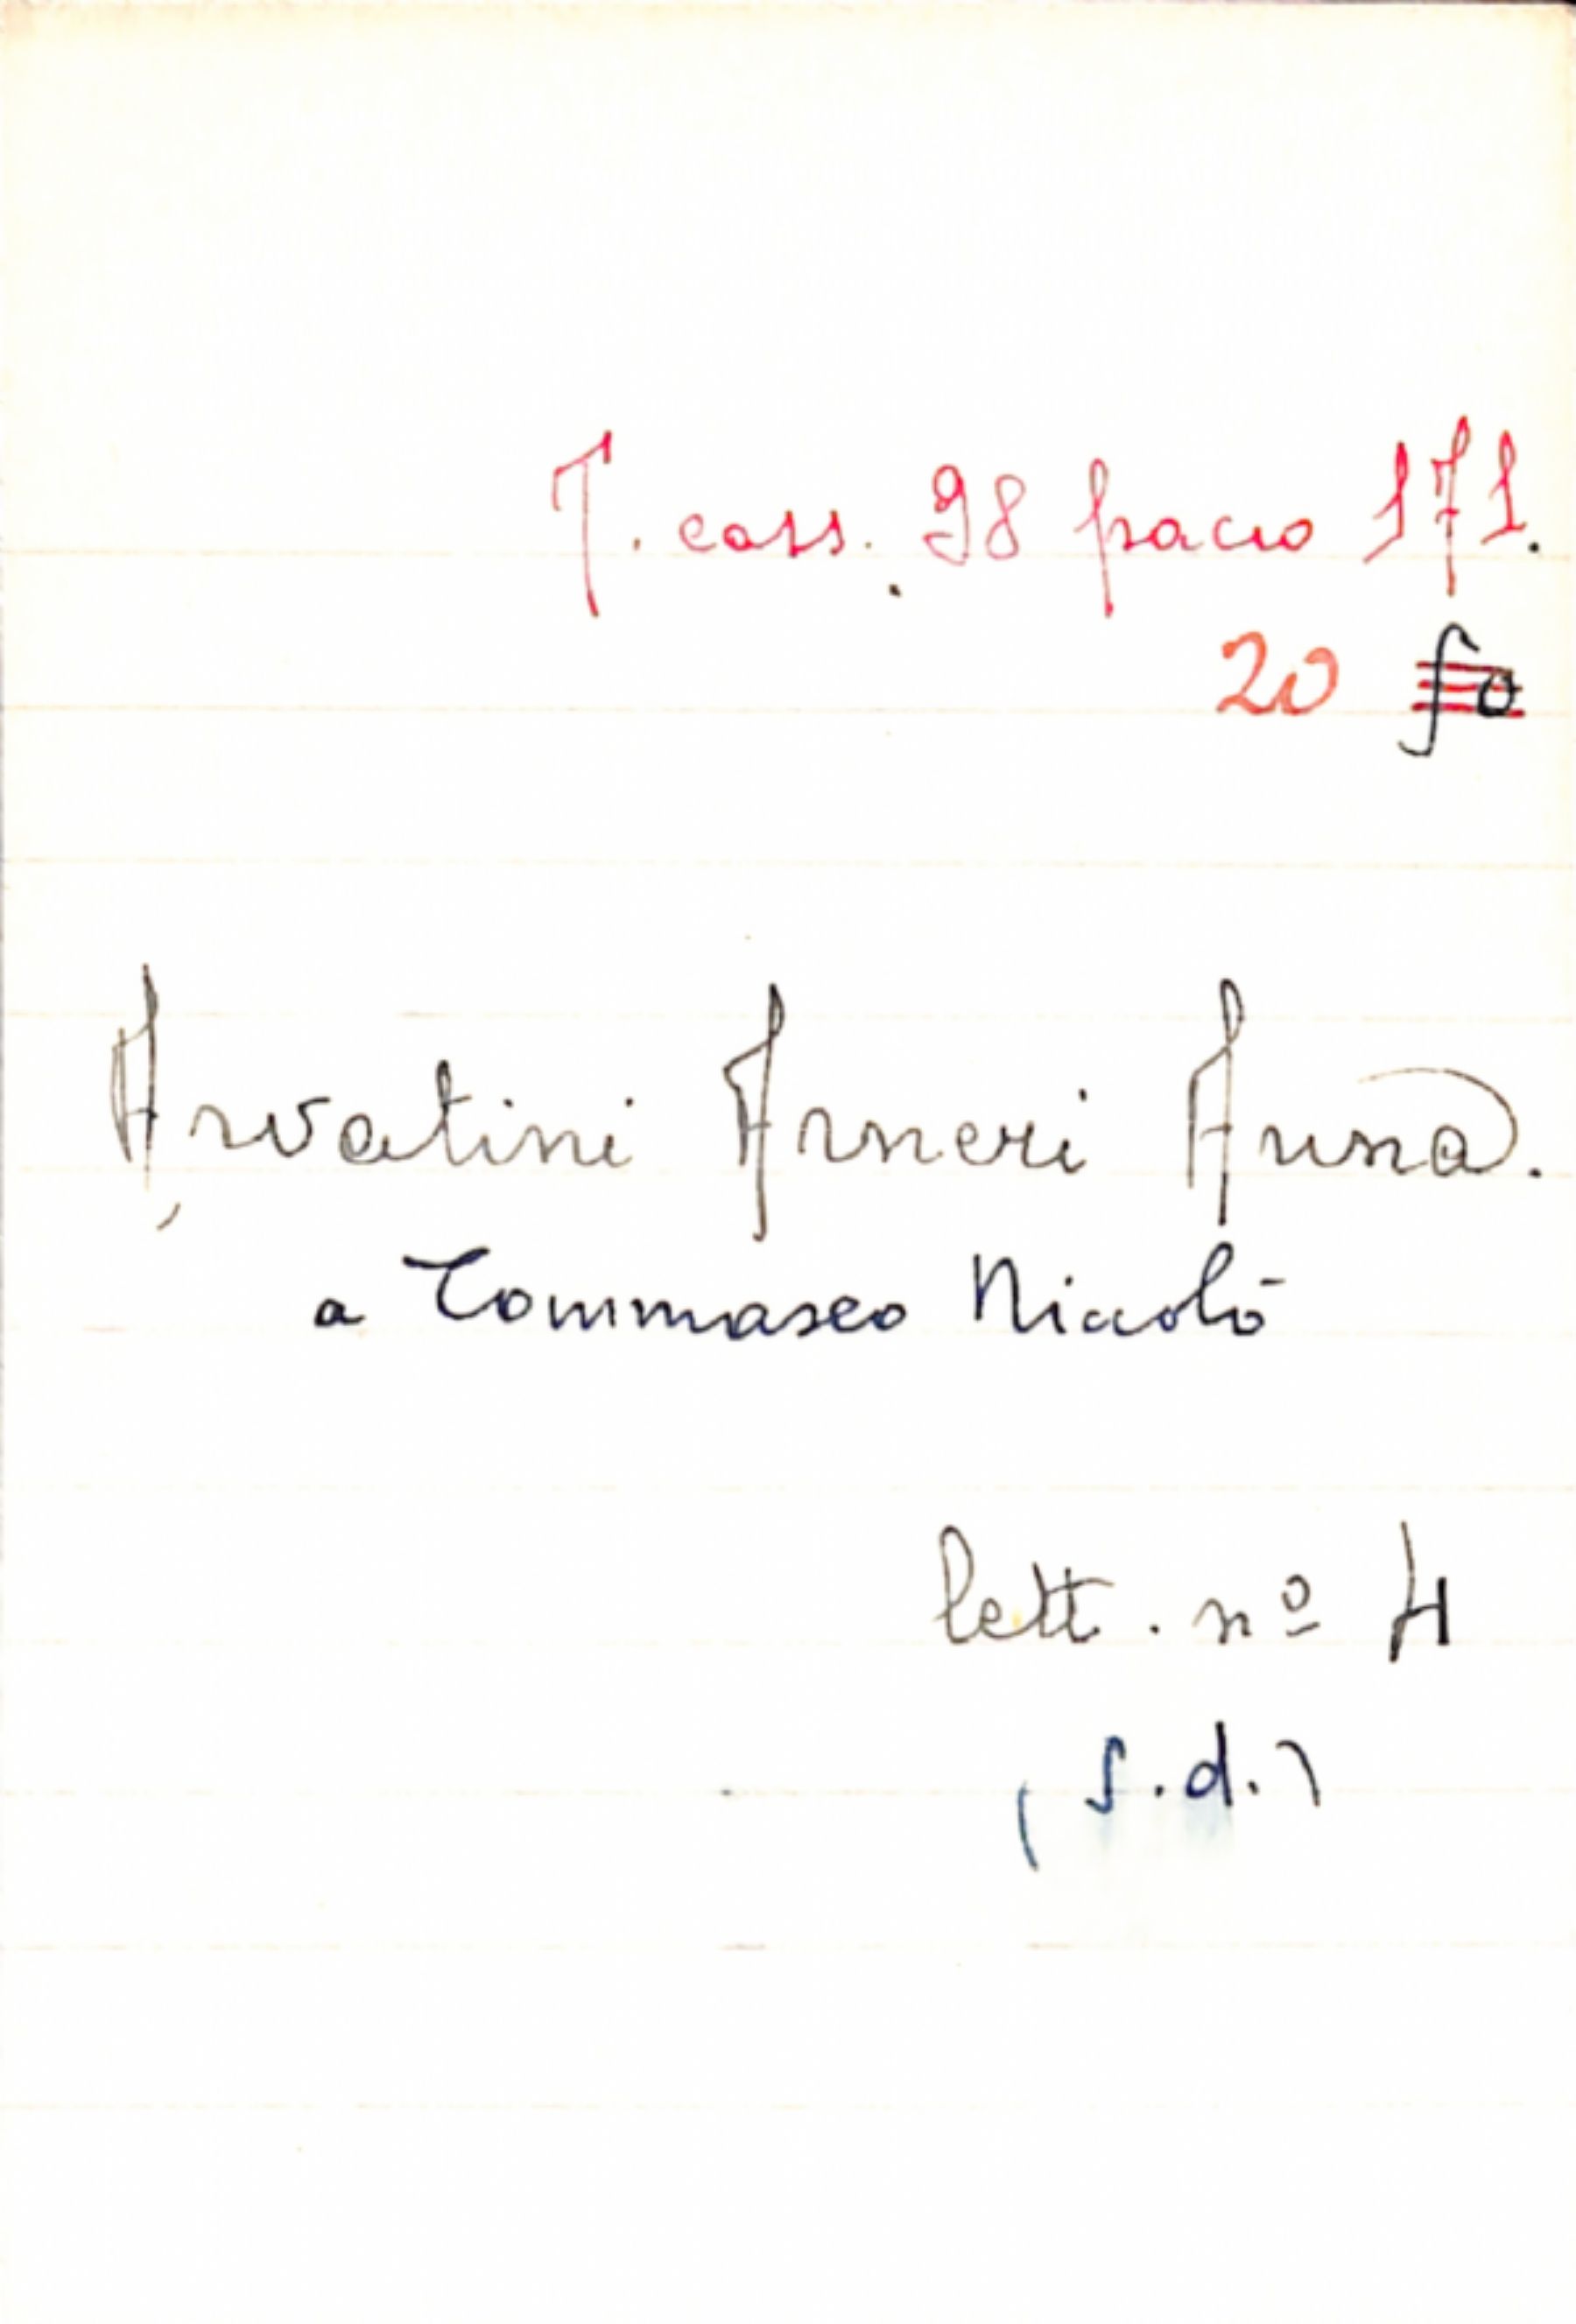 T. cass. 98 pacco 171.
20
Arvatini Arneri Anna.
a Tommaseo Niccolò
lett. nº 4
(s.d.)